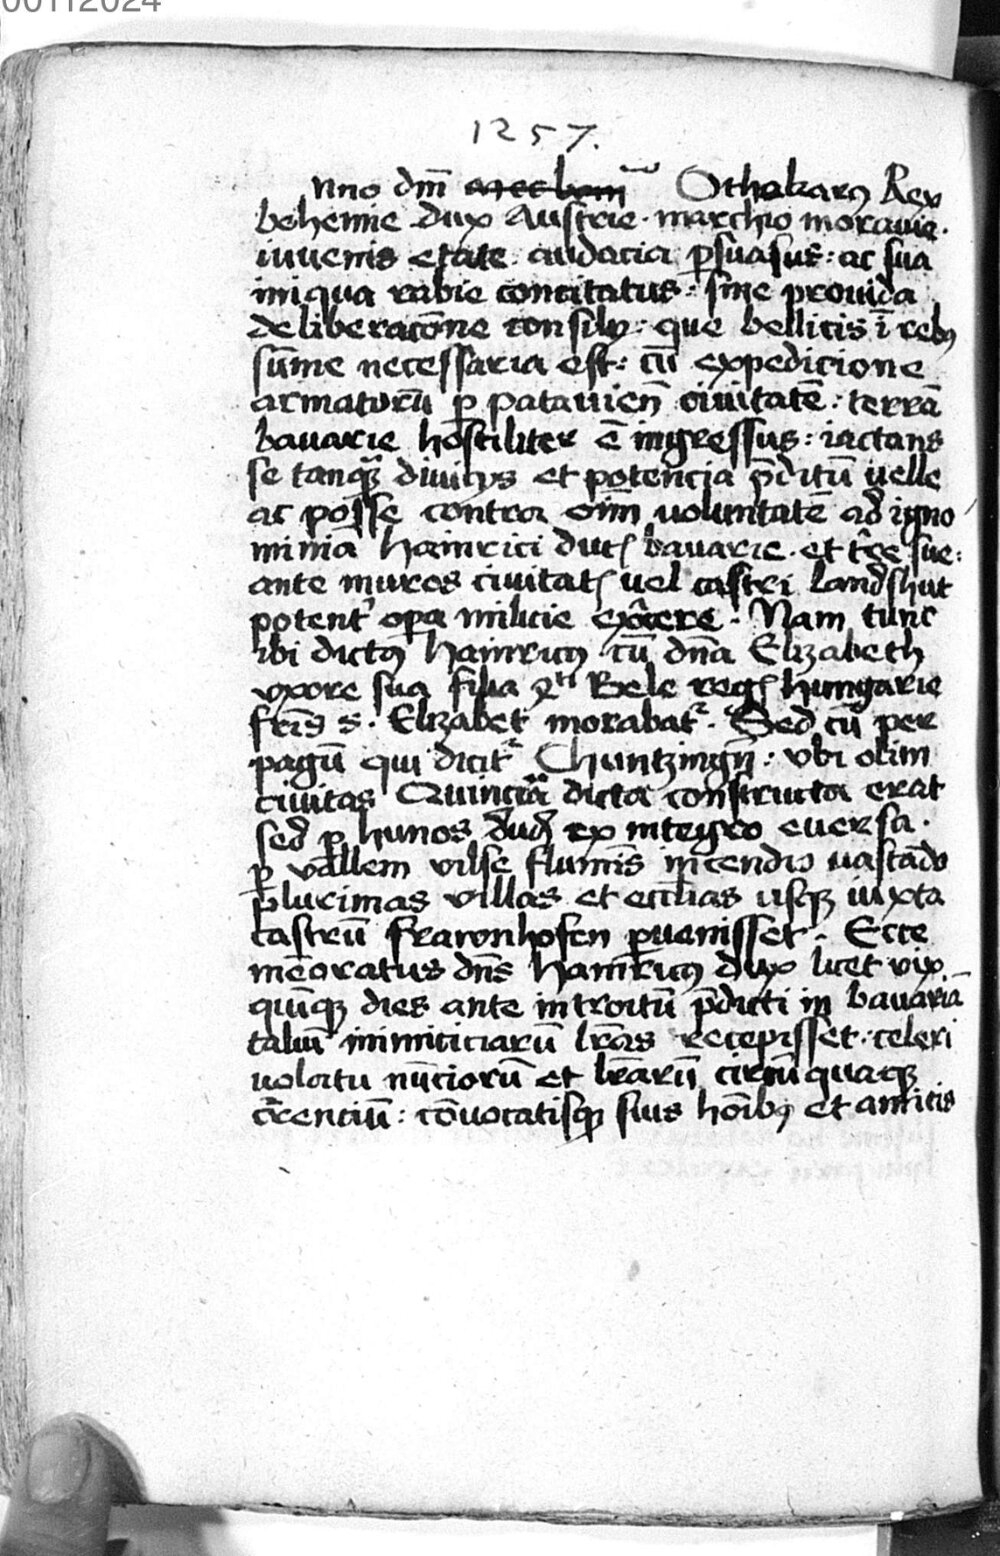 00112024
1257.
nno dm̄ Othakarꝰ Rex
behemie dux Austrie · marchio morauie ·
iuuenis etate · audacia ꝑsuasus : ac sua
iniqua rabie concitatus : sine prouida
deliberacōne consilij : que bellicis ī rebꝰ
sūme necessaria est : cū expedicione
armatorū ꝑ patauien̄ ciuitatē : terrā
bauarie hostiliter ē ingressus : iactans
se tanqꝫ diuicijs et potencia p̄ditū uelle
ac posse contra om̄m voluntatē ad igno
miniā hainrici ducꝭ bauarie · et t̄re sue :
ante muros ciuitatꝭ uel castri landshut
potent᷑ oꝑa milicie ex̄cere · Nam tunc
ibi dictꝰ hainricꝰ cū dn̄a Elizabeth
vxore sua filia qͬti Bele regꝭ hungarie
fr̄is s · Elizabet morabat᷑ · Sed cū per
pagū qui dicit᷑ Chuntzingn̄ : vbi olim
ciuitas Quinciana dicta constructa erat
sed ꝑ hunos dudū ex integro euersa ·
ꝑ vallem vilse flumīs incendio uastādo
plurimas villas et ecc̄lias usqꝫ iuxta
castrū fraronhofen ꝑuenisset · Ecce
mēoratus dn̄s hainricꝰ dux licet vix
quīqꝫ dies ante introitū p̄dicti in bauariā
taliū inimiciciarū lr̄as recepisset · celeri
uolatu nūciorū et lr̄arū circūquaqꝫ
c̄renciū : cōuocatisqꝫ suis hoībꝰ et amicis